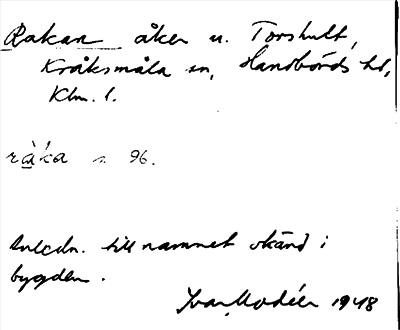 Rakan åker u. Torshult,
Kråksmåla sn, Handbörds hd,
Klm. l.
ràka s. 96.
Anledn. till namnet okänd i
bygden.
Ivar Modéer 1948